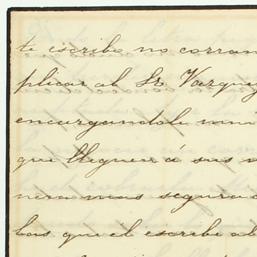 te escribo no corran
plicar al Sr. Vazque
encargandole
que lleguen á sus
nera mas segura
las que el escribe al